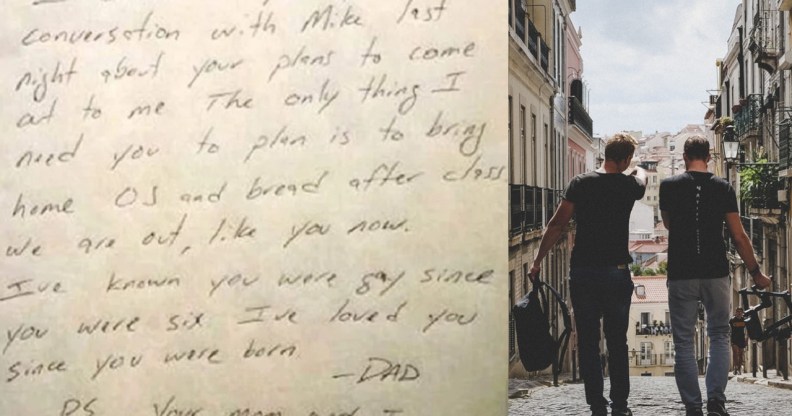 conversation with Mike last
night about your plans to come
out to me The only thing I
need you to plan is to bring
home OJ and bread after class
we are out, like you now.
I've known you were gay since
you were six I've loved you
since you were born
-DAD
PS Your mom and I